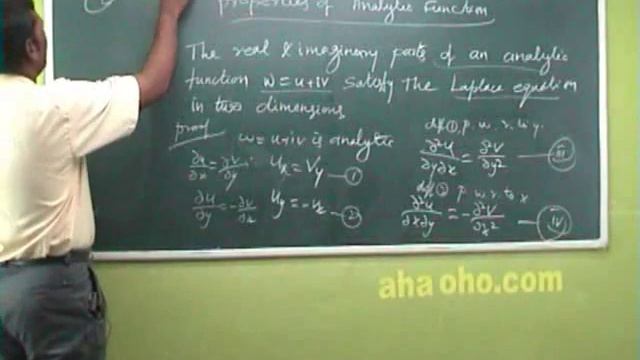 properties of Analytic Function
The real & imaginary parts of an analytic
function w = u+iv satisfy the Laplace equation
in two dimensions
proof w = u+iv is analytic
∂u/∂x = ∂v/∂y uₓ = Vy ①
∂u/∂y = -∂v/∂x uy = -vₓ ②
diff ① p. w. r. to y.
∂²u/∂y∂x = ∂²v/∂y² iii
diff ② p. w. r. to x
∂²u/∂x∂y = -∂²v/∂x² iv
ahaoho.com